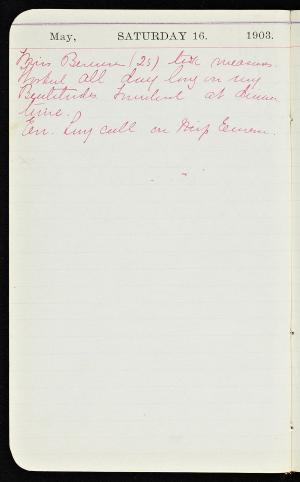 May, SATURDAY 16. 1903.
Miss (2s) took measures.
Worked all day long on my
Beatitudes. Finished at dinner
time.
Ev. Long call on Miss